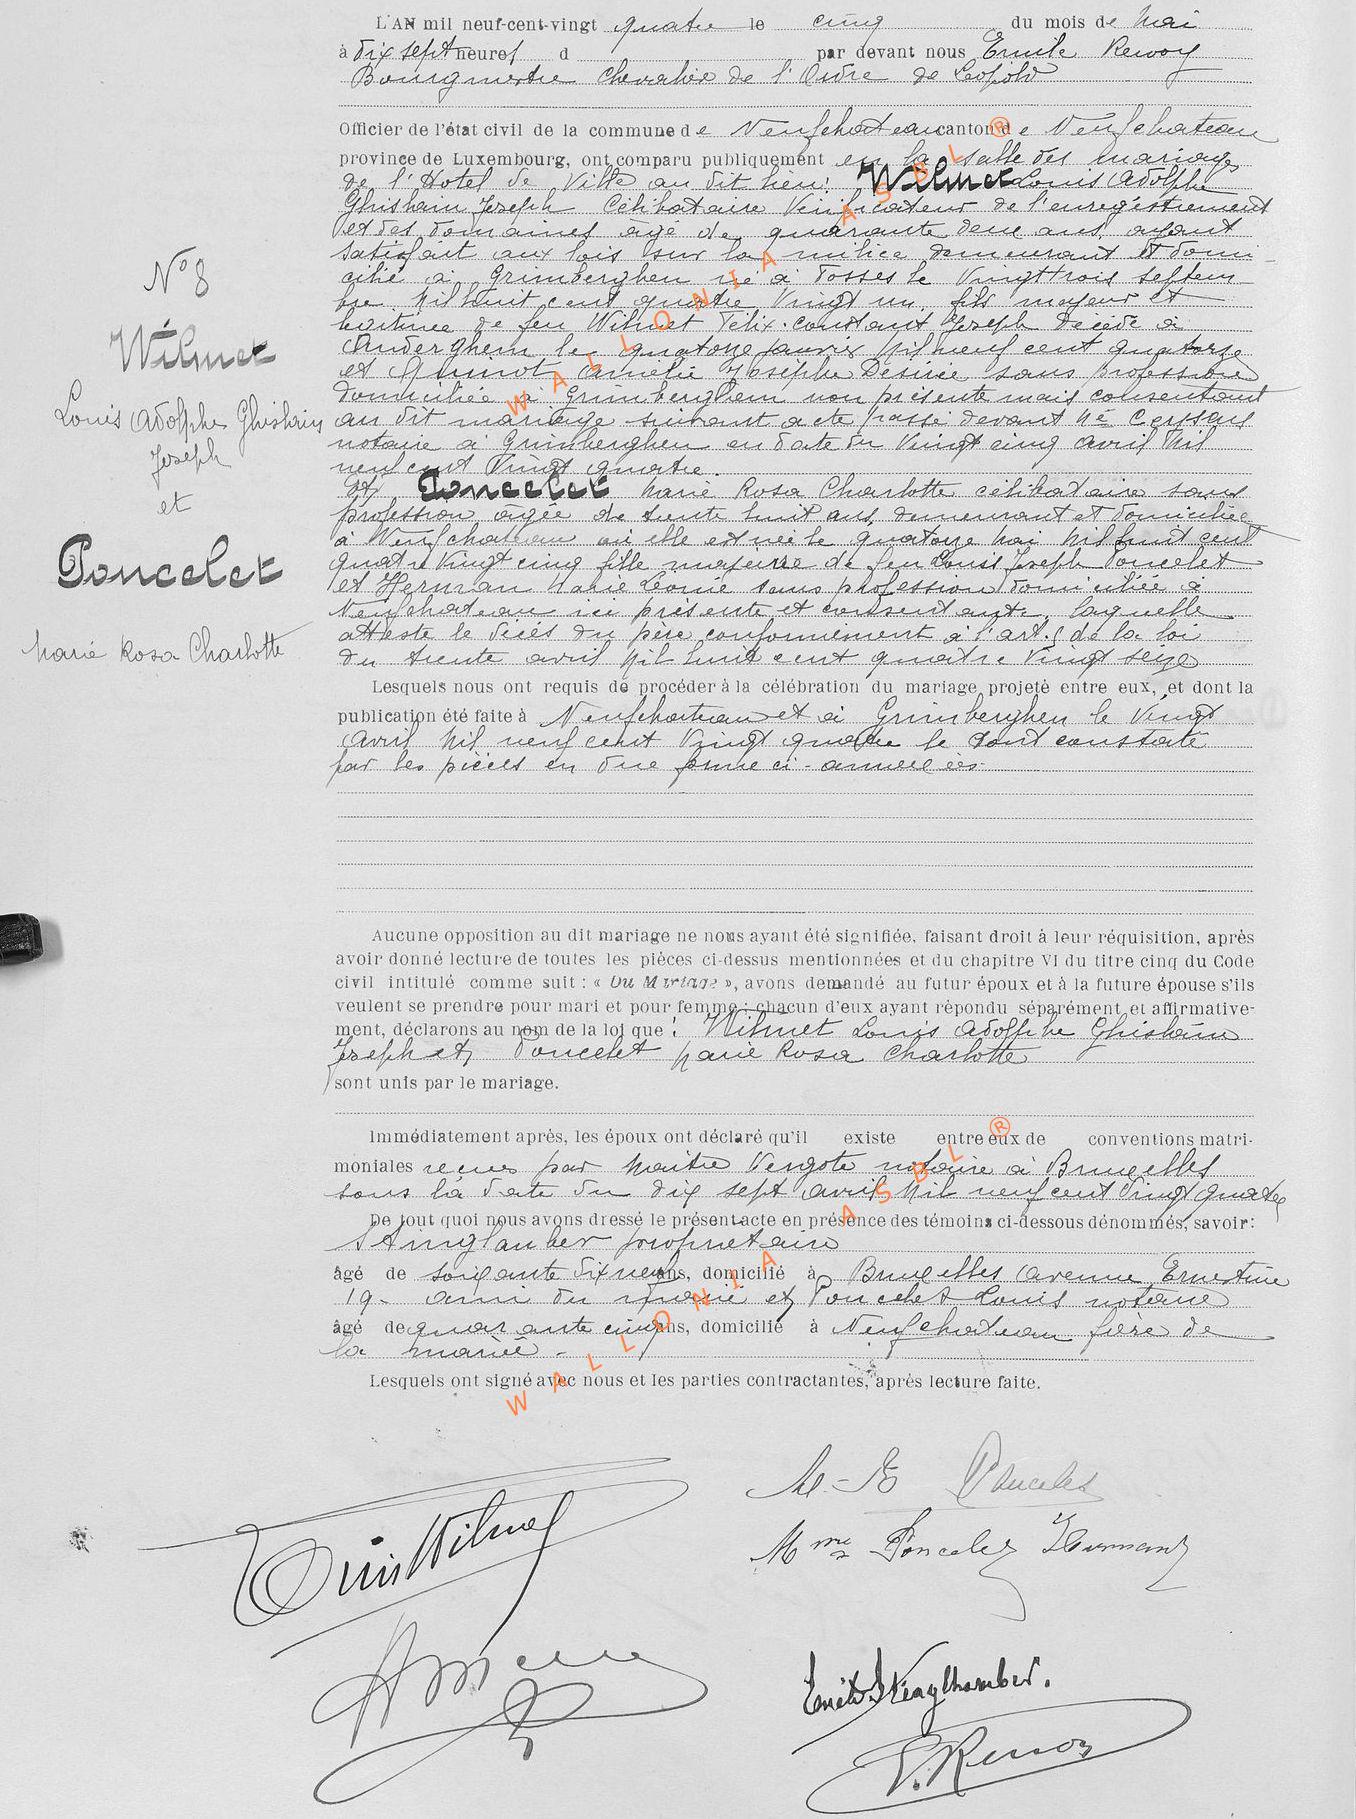 L'AN mil neuf-cent-vingt quatre le cinq du mois de Mai
à dix sept heures d par devant nous Emile
Bourgmestre Chevalier de l'Ordre de Léopold
Officier de l'état civil de la commune de Neufchateau canton de Neufchateau
province de Luxembourg, ont comparu publiquement en la salle des mariages
de l'Hotel de Ville au dit lieu: Wilmet Louis Adolphe
Ghislain Joseph Célibataire Vérificateur de l'enregistrement
et des domaines âgé de quarante deux ans ayant
satisfait aux lois sur la milice demeurant et domi
cilié à Grimberghen né à Tosses le Vingt trois Septem
bre Mil huit cent quatre Vingt un, fils majeur et
légitime de feu Wilmet Félix-Constant Joseph décédé à
Auderghem le quatorze janvier Mil neuf cent quatorze
et Amélie Josèphe Désirée sans profession
domiciliée à Grimberghen non présente mais consentant
au dit mariage suivant acte passé devant Me
notaire à Grimberghen en date du Vingt cinq avril Mil
neuf cent Vingt quatre.
Et Poncelet Marie Rosa Charlotte célibataire sans
profession âgée de trente huit ans, demeurant et domiciliée
à Neufchateau où elle est née le quatorze Mai Mil huit cent
quatre Vingt cinq fille majeure de feu Louis Joseph Poncelet
et Herman Marie Léonie sans profession domiciliée à
Neufchateau ici présente et consentante, laquelle
atteste le décès du père conformément à l'art. de la loi
du trente avril Mil huit cent quatre Vingt seize
N° 8
Wilmet
Louis Adolphe Ghislain
Joseph
et
Poncelet
Marie Rosa Charlotte
Lesquels nous ont requis de procéder à la célébration du mariage projeté entre eux, et dont la
publication été faite à Neufchateau et à Grimberghen le Vingt
Avril Mil neuf cent Vingt quatre le tout constaté
par les pièces en due forme ci-annexées
Aucune opposition au dit mariage ne nous ayant été signifiée, faisant droit à leur réquisition, après
avoir donné lecture de toutes les pièces ci-dessus mentionnées et du chapitre VI du titre cinq du Code
civil intitulé comme suit : « Du Mariage », avons demandé au futur époux et à la future épouse s'ils
veulent se prendre pour mari et pour femme ; chacun d'eux ayant répondu séparément et affirmative-
ment, déclarons au nom de la loi que : Wilmet Louis Adolphe Ghislain
Joseph et Poncelet Marie Rosa Charlotte
sont unis par le mariage.
Immédiatement après, les époux ont déclaré qu'il existe entre eux de conventions matri-
moniales reçues par Maître Vergote notaire à Bruxelles
sous la date du dix sept avril Mil neuf cent Vingt quatre
De tout quoi nous avons dressé le présent acte en présence des témoins ci-dessous dénommés, savoir :
propriétaire
âgé de soixante dix neuf ans, domicilié à Bruxelles avenue Ernestine
19 - ami du marié et Poncelet Louis notaire
âgé de quarante cinq ans, domicilié à Neufchateau frère de
la mariée -
Lesquels ont signé avec nous et les parties contractantes, après lecture faite.
M-R Poncelet
Louis Wilmet
Mme Poncelet Herman
WALLONIA ASBL ®
WALLONIA ASBL ®